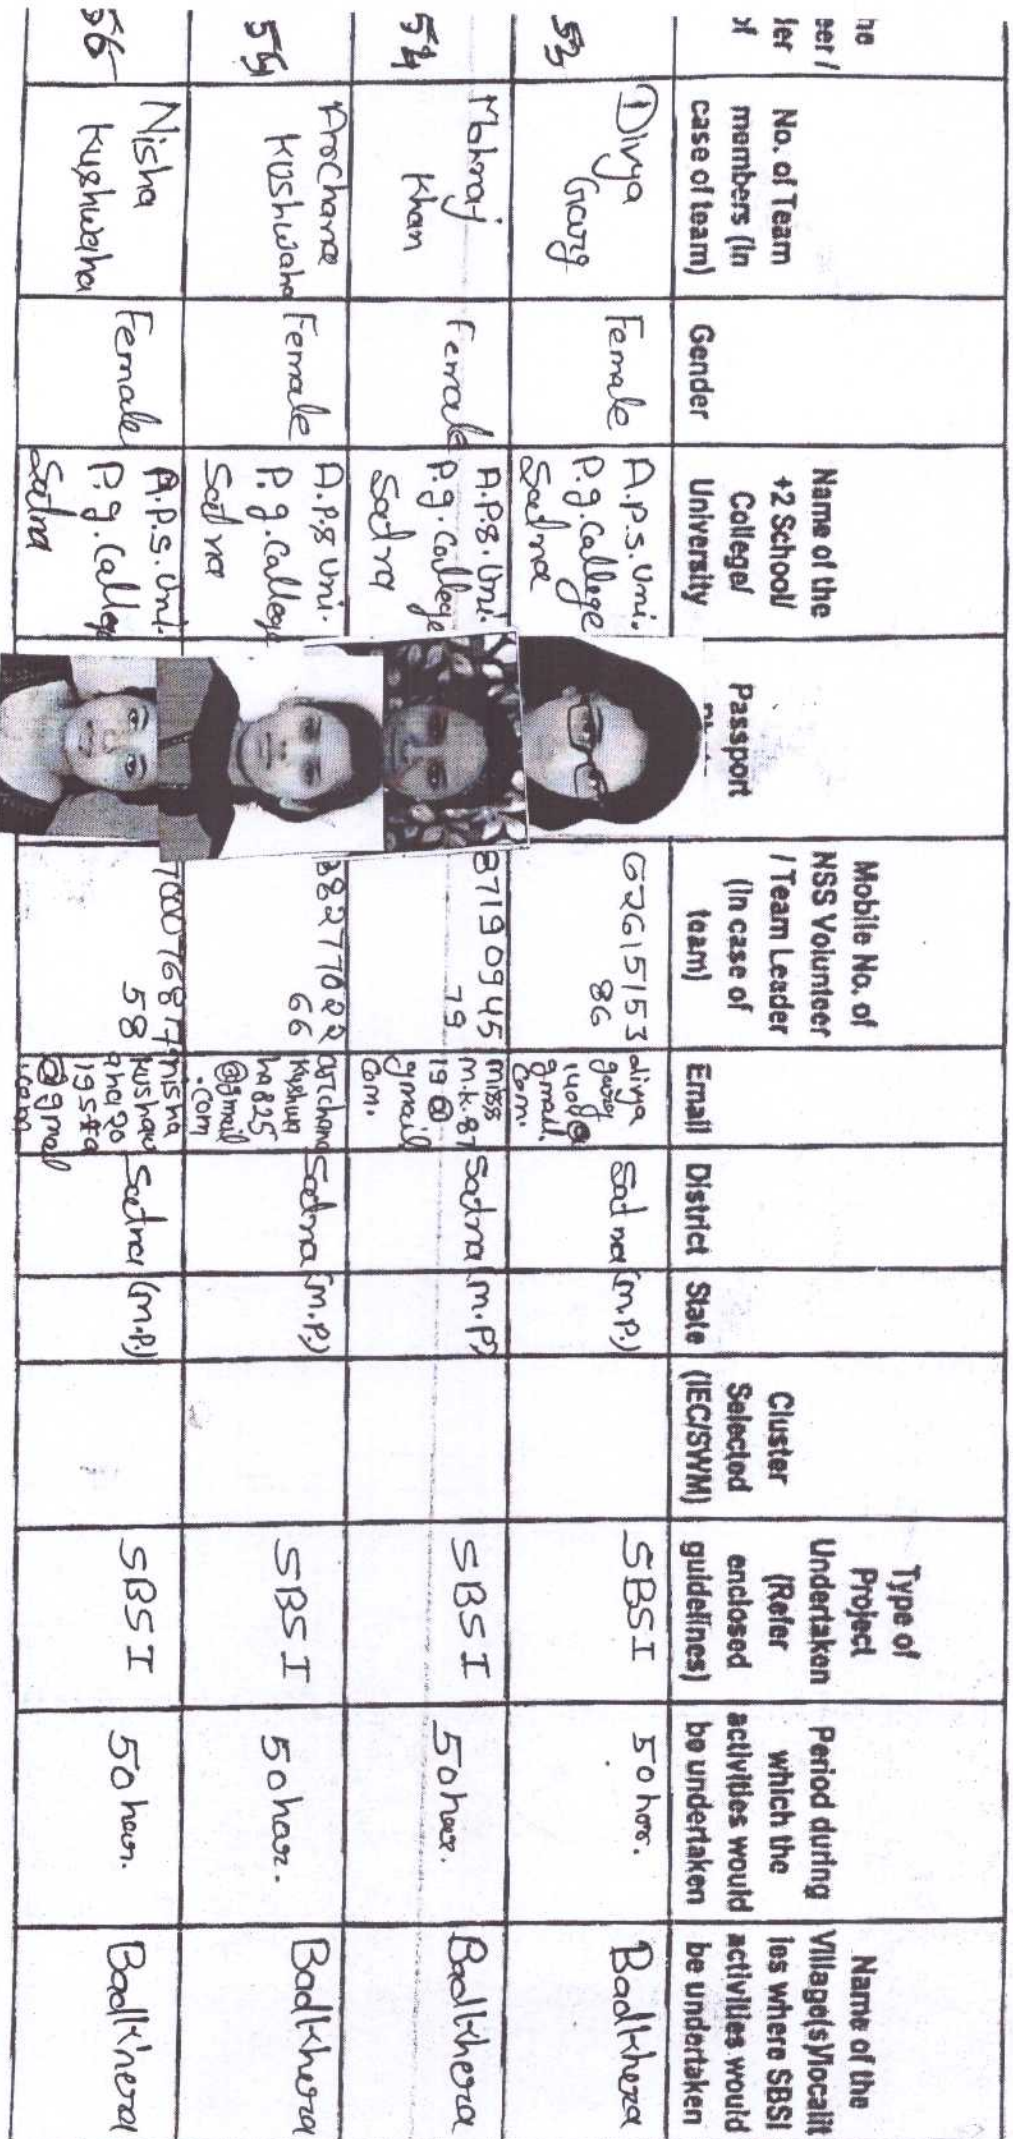 No. of Team
members (In
case of team)
Gender
Name of the
+2 School/
College/
University
Passport
Mobile No. of
NSS Volunteer
/ Team Leader
(In case of
team)
Email
District
State
Cluster
Selected
(IEC/SWM)
Type of
Project
Undertaken
(Refer
enclosed
guidelines)
Period during
which the
activities would
be undertaken
Name of the
Village(s)/localit
ies where SBSI
activities would
be undertaken
53
Divya
Garg
Female
A.P.S. Uni.
P.g. College
Satna
62615153
86
gmail.
com.
Satna (M.P.)
SBSI
50 hor.
Badkhera
54
Mahraj
Khan
Female
A.P.S. Uni.
P.g. College
Satna
87190945
79
miss
m.k.87
19@
gmail
com.
Satna (M.P)
SBSI
50 hour.
Badkhera
55
Archana
Kushwaha
Female
A.P.S Uni.
P.g. College
Satna
66
archana
Kushwa
ha825
@gmail
.com
Satna (M.P.)
SBSI
50 hour.
Badkhera
56
Nisha
Kushwaha
Female
A.P.S. Uni.
P.g. College
Satna
58
nisha
@gmail
.com
Satna (M.P.)
SBSI
50 hour.
Badkhera